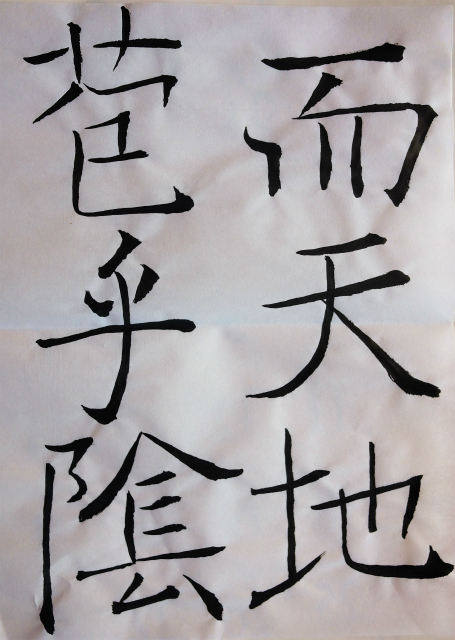 而天地
苞乎陰